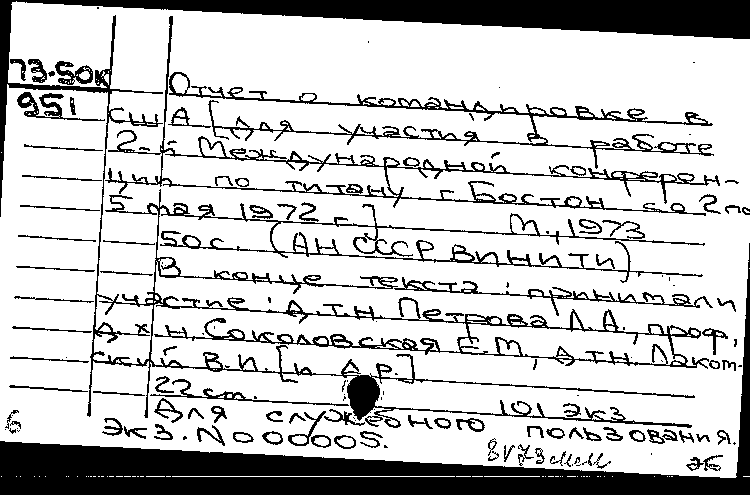 73-50к
951
Отчет о командировке в
США [для участия в работе
2-й Международной конферен-
ции по титану г. Бостон со 2 по
5 мая 1972 г.] М., 1973
50 с. (АН СССР ВИНИТИ).
В конце текста: принимали
участие: д.т.н. Петрова Л.А., проф.
д.х.н. Соколовская Е.М., д.т.н. Лакот-
ский В.И. [и др.]
22 см. 101 экз
Для служебного пользования.
Экз. № 000005.
6